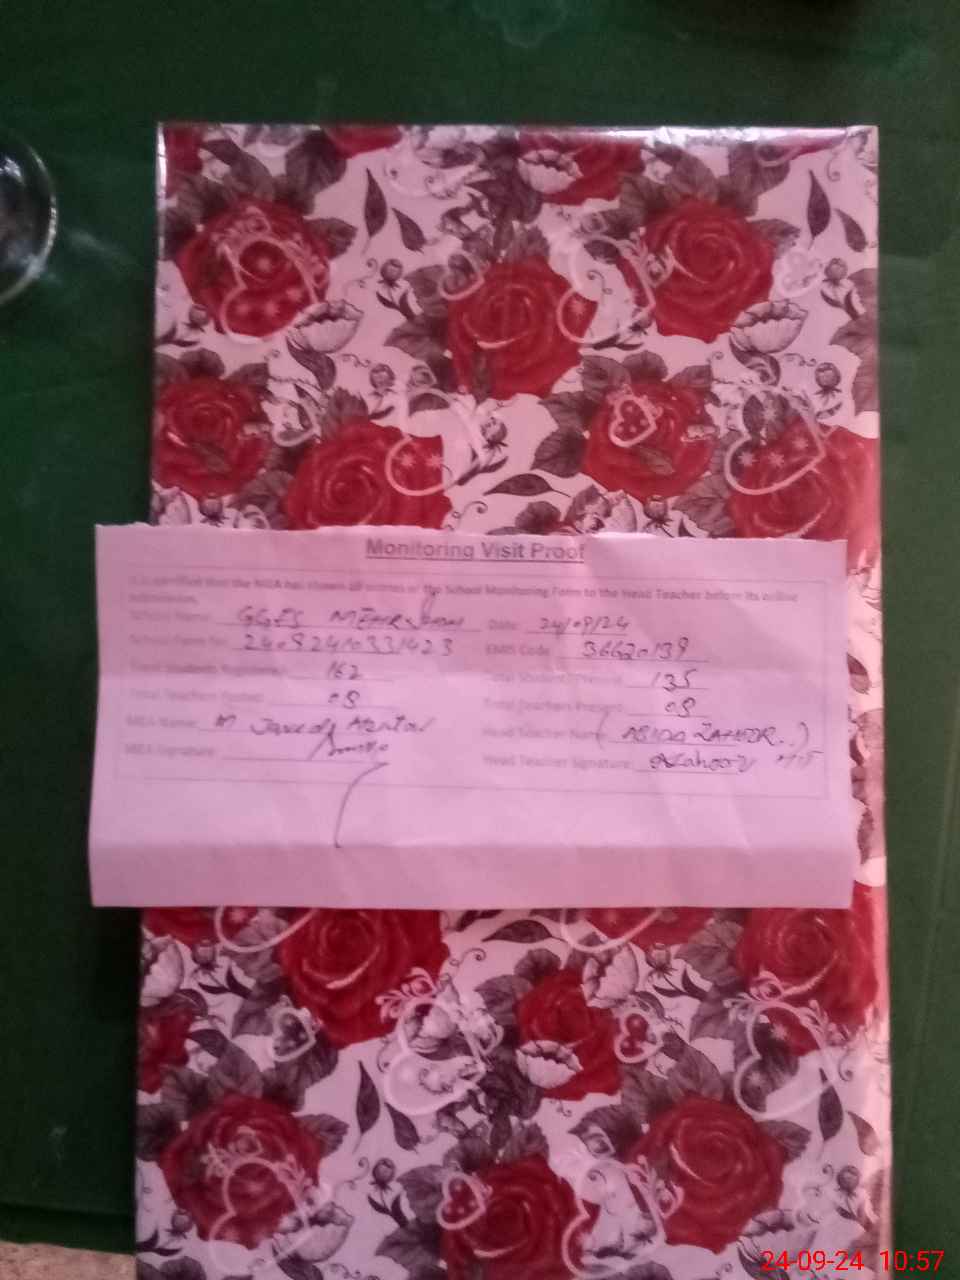 Monitoring Visit Proof
It is certified that the MEA has shown all entries of the School Monitoring Form to the Head Teacher before its online
submission.
School Name: GGES Date: 24/09/24
School Form No: EMIS Code: 36620139
Total Students Registered: 162 Total Students Present: 135
Total Teachers Posted: 08 Total Teachers Present: 08
MEA Name: M Head Teacher Name: (ABIDA ZAHOOR..)
MEA Signature: Head Teacher Signature:
24-09-24 10:57